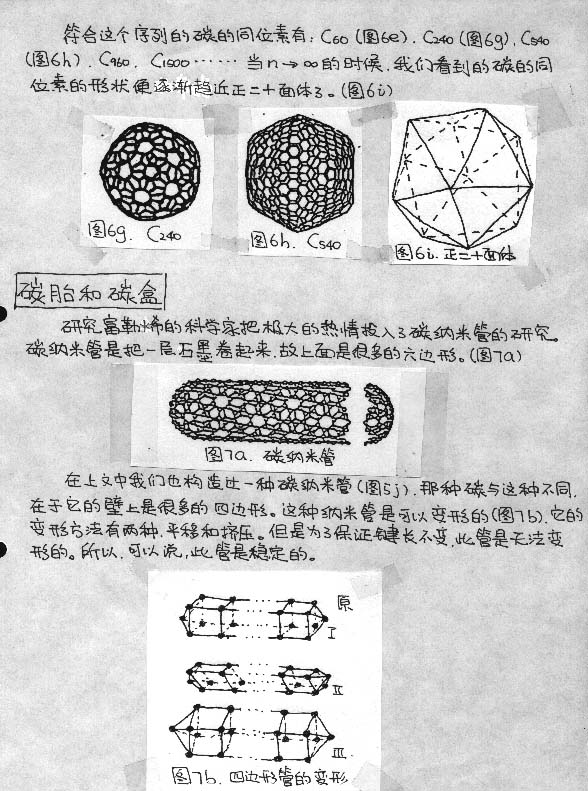 符合这个序列的碳的同位素有：C60（图6e）．C240（图6g）．C540
（图6h）．C960．C1500……当n→∞的时候，我们看到的碳的同
位素的形状便逐渐趋近正二十面体了。（图6i）
图6g. C240
图6h. C540
图6i.正二十面体
碳胎和碳盒
研究富勒烯的科学家把极大的热情投入了碳纳米管的研究。
碳纳米管是把一层石墨卷起来，故上面是很多的六边形。（图7a）
图7a. 碳纳米管
在上文中我们也构造出一种碳纳米管（图5j）．那种碳与这种不同，
在于它的壁上是很多的四边形。这种纳米管是可以变形的（图7b）．它的
变形方法有两种．平移和挤压。但是为了保证键长不变，此管是无法变
形的。所以，可以说，此管是稳定的。
原
I
II
III
图7b. 四边形管的变形